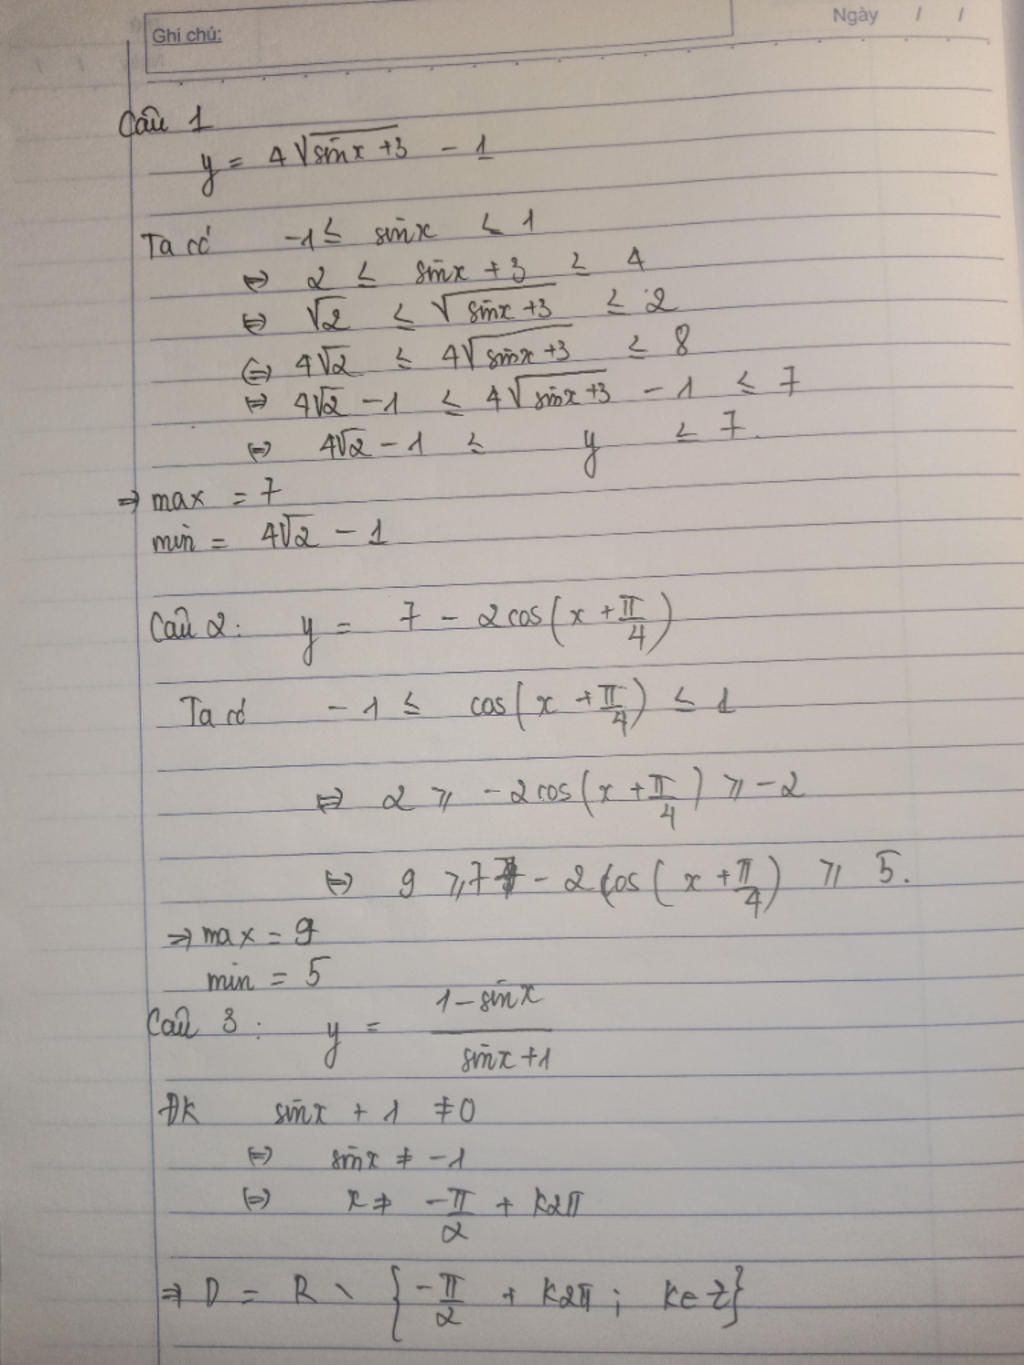 Ghi chú:
Ngày / /
Câu 1
y = 4√(sinx + 3) - 1
Ta có -1 ≤ sinx ≤ 1
⇔ 2 ≤ sinx + 3 ≥ 4
⇔ √2 ≤ √(sinx + 3) ≤ 2
⇔ 4√2 ≤ 4√(sinx + 3) ≤ 8
⇔ 4√2 - 1 ≤ 4√(sinx + 3) - 1 ≤ 7
⇔ 4√2 - 1 ≤ y ≤ 7.
⇒ max = 7
min = 4√2 - 1
Câu 2: y = 7 - 2cos(x + π/4)
Ta có -1 ≤ cos(x + π/4) ≤ 1
⇔ 2 ⩾ -2cos(x + π/4) ⩾ -2
⇔ 9 ⩾ 7 - 2cos(x + π/4) ⩾ 5.
⇒ max = 9
min = 5
Câu 3: y = (1 - sinx)/(sinx + 1)
ĐK sinx + 1 ≠ 0
⇔ sinx ≠ -1
⇔ x ≠ -π/2 + k2π
⇒ D = R \ {-π/2 + k2π; k∈Z}